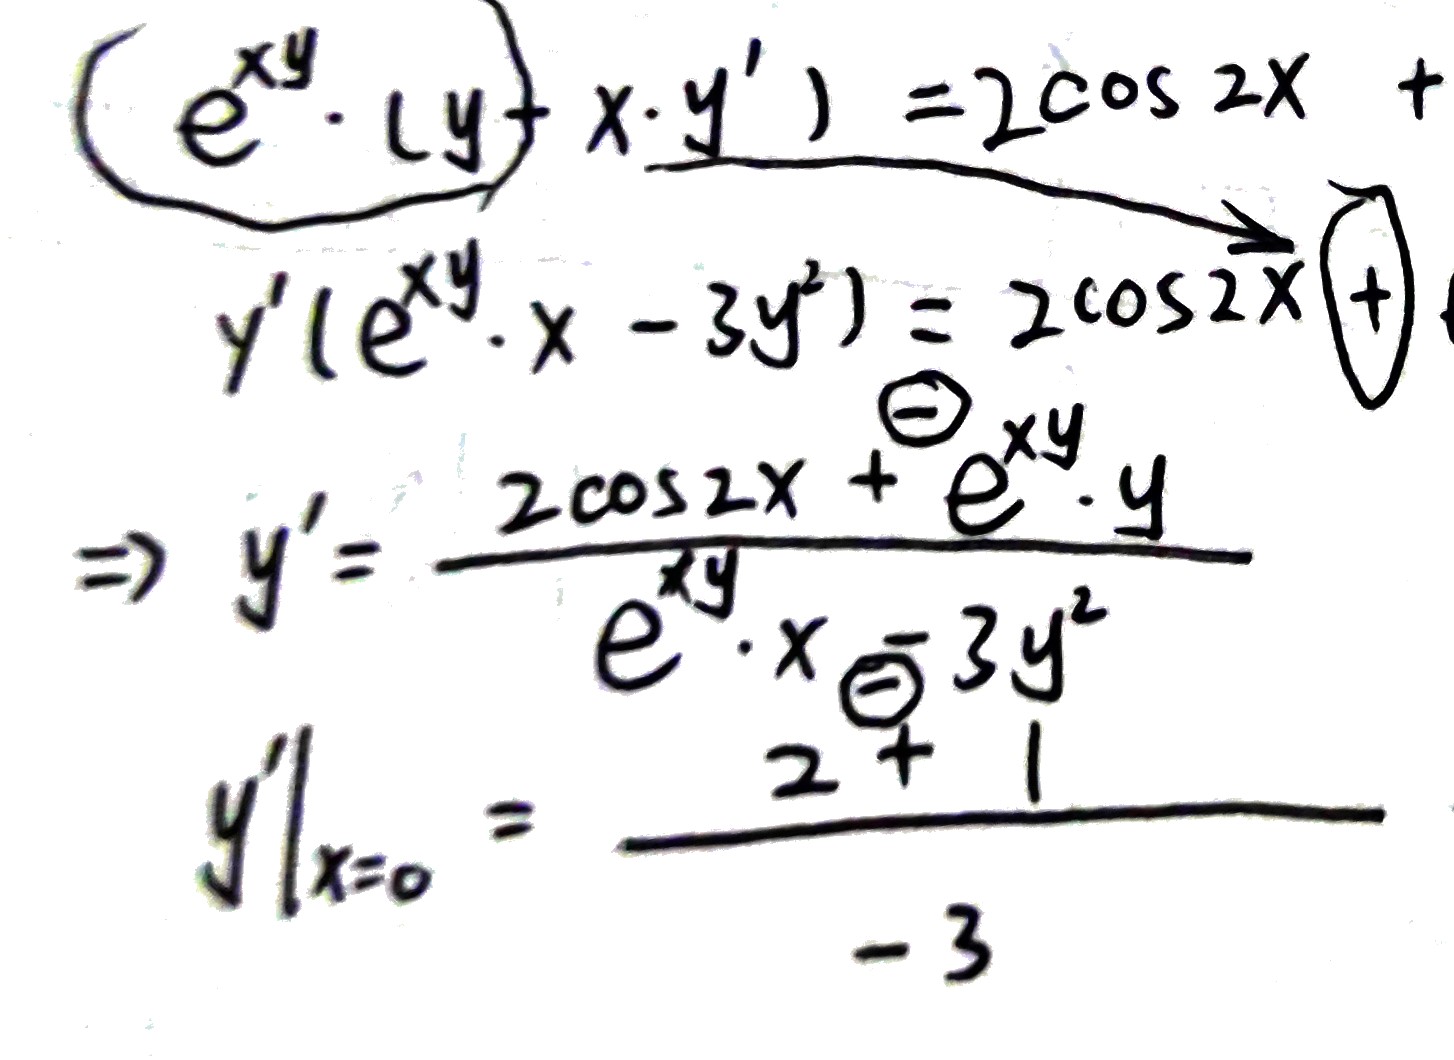 e^{xy} · (y + x · y') = 2cos 2x +
y'(e^{xy} · x - 3y²) = 2cos2x +
⇒ y' = \frac{2cos2x + ⊖ e^{xy} · y}{e^{xy} · x ⊖ - 3y²}
y'|_{x=0} = \frac{2 + 1}{-3}